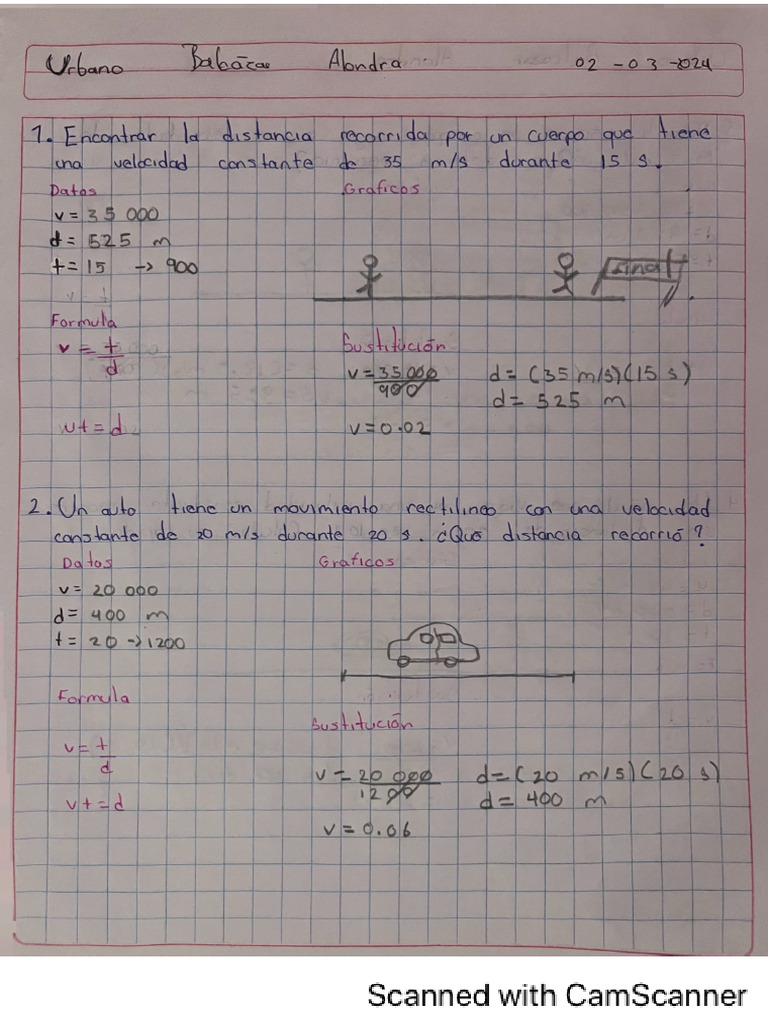 Urbano Babácas Alondra 02-03-2024
1. Encontrar la distancia recorrida por un cuerpo que tiene
una velocidad constante de 35 m/s durante 15 s.
Datos Graficos
v = 35 000
d = 525 m
t = 15 -> 900
Final
Formula
Sustitución
v = t/d
v = 35 000/900 d = (35 m/s)(15 s)
d = 525 m
vt = d v = 0.02
2. Un auto tiene un movimiento rectilineo con una velocidad
constante de 20 m/s durante 20 s. ¿Qué distancia recorrió?
Datos Graficos
v = 20 000
d = 400 m
t = 20 -> 1200
Formula
Sustitución
v = t/d
v = 20 000/1200 d = (20 m/s)(20 s)
vt = d d = 400 m
v = 0.06
Scanned with CamScanner